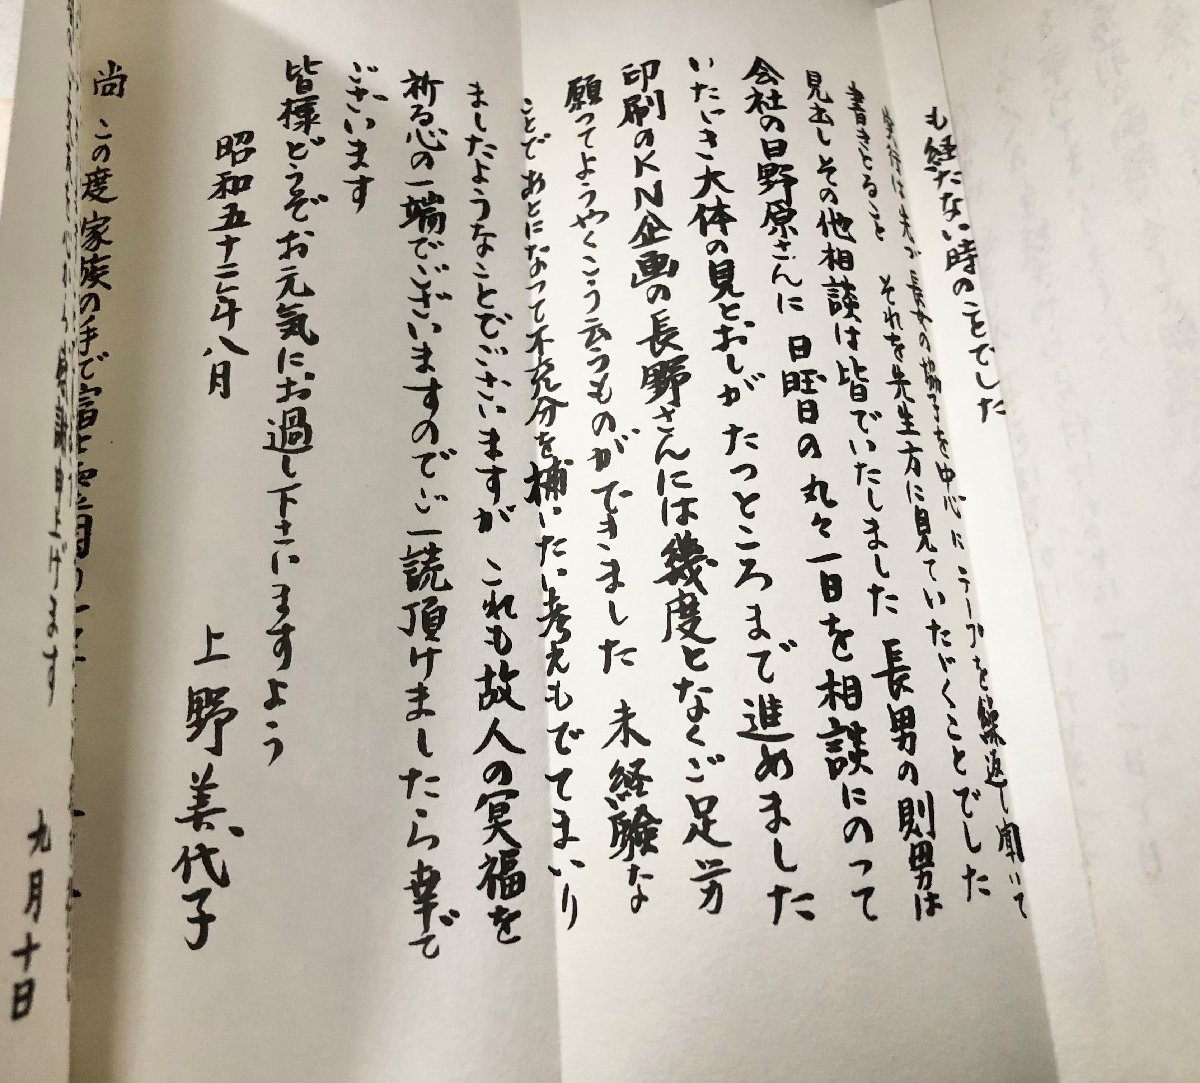 も経たない時のことでした
は先づ長女の協子を中心にテープを繰返し聞いて
書きとること それを先生方に見ていたゞくことでした
見出しその他相談は皆でいたしました 長男の則男は
会社の日野原さんに 日曜日の丸々一日を相談にのって
いたゞき大体の見とおしがたつところまで進めました
印刷のKN企画の長野さんには幾度となくご足労
願ってようやくこう云うものができました 未経験な
ことであとになって不充分を補いたい考えもでてまいり
ましたようなことでございますが これも故人の冥福を
祈る心の一端でございますのでご一読頂けましたら幸で
ございます
皆様どうぞお元気にお過し下さいますよう
昭和五十二年八月
上野美代子
尚 この度家族の手で
感謝申上げます
九月十日